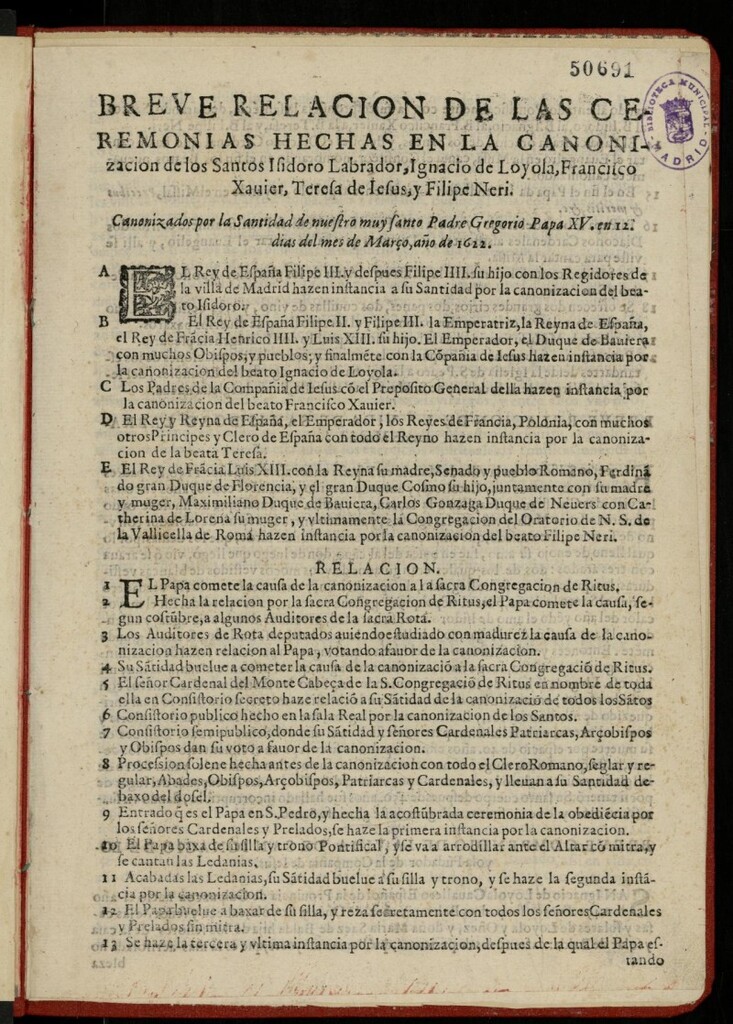 50691
BIBLIOTECA MUNICIPAL
MADRID
BREVE RELACION DE LAS CE-
REMONIAS HECHAS EN LA CANONI-
zacion de los Santos Iſidoro Labrador, Ignacio de Loyola, Franciſco
Xauier, Tereſa de Ieſus, y Filipe Neri.
Canonizados por la Santidad de nueſtro muy ſanto Padre Gregorio Papa XV. en 12.
dias del mes de Março, año de 1622.
A EL Rey de Eſpaña Filipe III. y deſpues Filipe IIII. ſu hijo con los Regidores de
la villa de Madrid hazen inſtancia a ſu Santidad por la canonizacion del bea-
to Iſidoro.
B El Rey de Eſpaña Filipe II. y Filipe III. la Emperatriz, la Reyna de Eſpaña,
el Rey de Frãcia Henrico IIII. y Luis XIII. ſu hijo. El Emperador, el Duque de Bauiera
con muchos Obiſpos, y pueblos; y finalmẽte con la Cõpañia de Ieſus hazen inſtancia por
la canonizacion del beato Ignacio de Loyola.
C Los Padres de la Compañia de Ieſus cõ el Propoſito General della hazen inſtancia por
la canonizacion del beato Franciſco Xauier.
D El Rey y Reyna de Eſpaña, el Emperador, los Reyes de Francia, Polonia, con muchos
otros Principes y Clero de Eſpaña con todo el Reyno hazen inſtancia por la canoniza-
cion de la beata Tereſa.
E El Rey de Frãcia Luis XIII. con la Reyna ſu madre, Senado y pueblo Romano, Ferdinã
do gran Duque de Florencia, y el gran Duque Coſmo ſu hijo, juntamente con ſu madre
y muger, Maximiliano Duque de Bauiera, Carlos Gonzaga Duque de Neuers con Ca-
therina de Lorena ſu muger, y vltimamente la Congregacion del Oratorio de N. S. de
la Vallicella de Roma hazen inſtancia por la canonizacion del beato Filipe Neri.
RELACION.
1 EL Papa comete la cauſa de la canonizacion a la ſacra Congregacion de Ritus.
2 Hecha la relacion por la ſacra Congregacion de Ritus, el Papa comete la cauſa, ſe-
gun coſtũbre, a algunos Auditores de la ſacra Rota.
3 Los Auditores de Rota deputados auiendo eſtudiado con madurez la cauſa de la cano-
nizacion hazen relacion al Papa, votando a fauor de la canonizacion.
4 Su Sãtidad buelue a cometer la cauſa de la canonizaciõ a la ſacra Congregaciõ de Ritus.
5 El ſeñor Cardenal del Monte Cabeça de la S. Congregaciõ de Ritus en nombre de toda
ella en Conſiſtorio ſecreto haze relaciõ a ſu Sãtidad de la canonizaciõ de todos los Sãtos
6 Conſiſtorio publico hecho en la ſala Real por la canonizacion de los Santos.
7 Conſiſtorio ſemipublico, donde ſu Sãtidad y ſeñores Cardenales Patriarcas, Arçobiſpos
y Obiſpos dan ſu voto a fauor de la canonizacion.
8 Proceſsion ſolene hecha antes de la canonizacion con todo el Clero Romano, ſeglar y re-
gular, Abades, Obiſpos, Arçobiſpos, Patriarcas y Cardenales, y lleuan a ſu Santidad de-
baxo del doſel.
9 Entrado q̃ es el Papa en S. Pedro, y hecha la acoſtũbrada ceremonia de la obediẽcia por
los ſeñores Cardenales y Prelados, ſe haze la primera inſtancia por la canonizacion.
10 El Papa baxa de ſu ſilla y trono Pontifical, y ſe va a arrodillar ante el Altar cõ mitra, y
ſe cantan las Ledanias.
11 Acabadas las Ledanias, ſu Sãtidad buelue a ſu ſilla y trono, y ſe haze la segunda inſtã-
cia por la canonizacion.
12 El Papa buelue a baxar de ſu ſilla, y reza ſecretamente con todos los ſeñores Cardenales
y Prelados ſin mitra.
13 Se haze la tercera y vltima inſtancia por la canonizacion, deſpues de la qual el Papa eſ-
tando